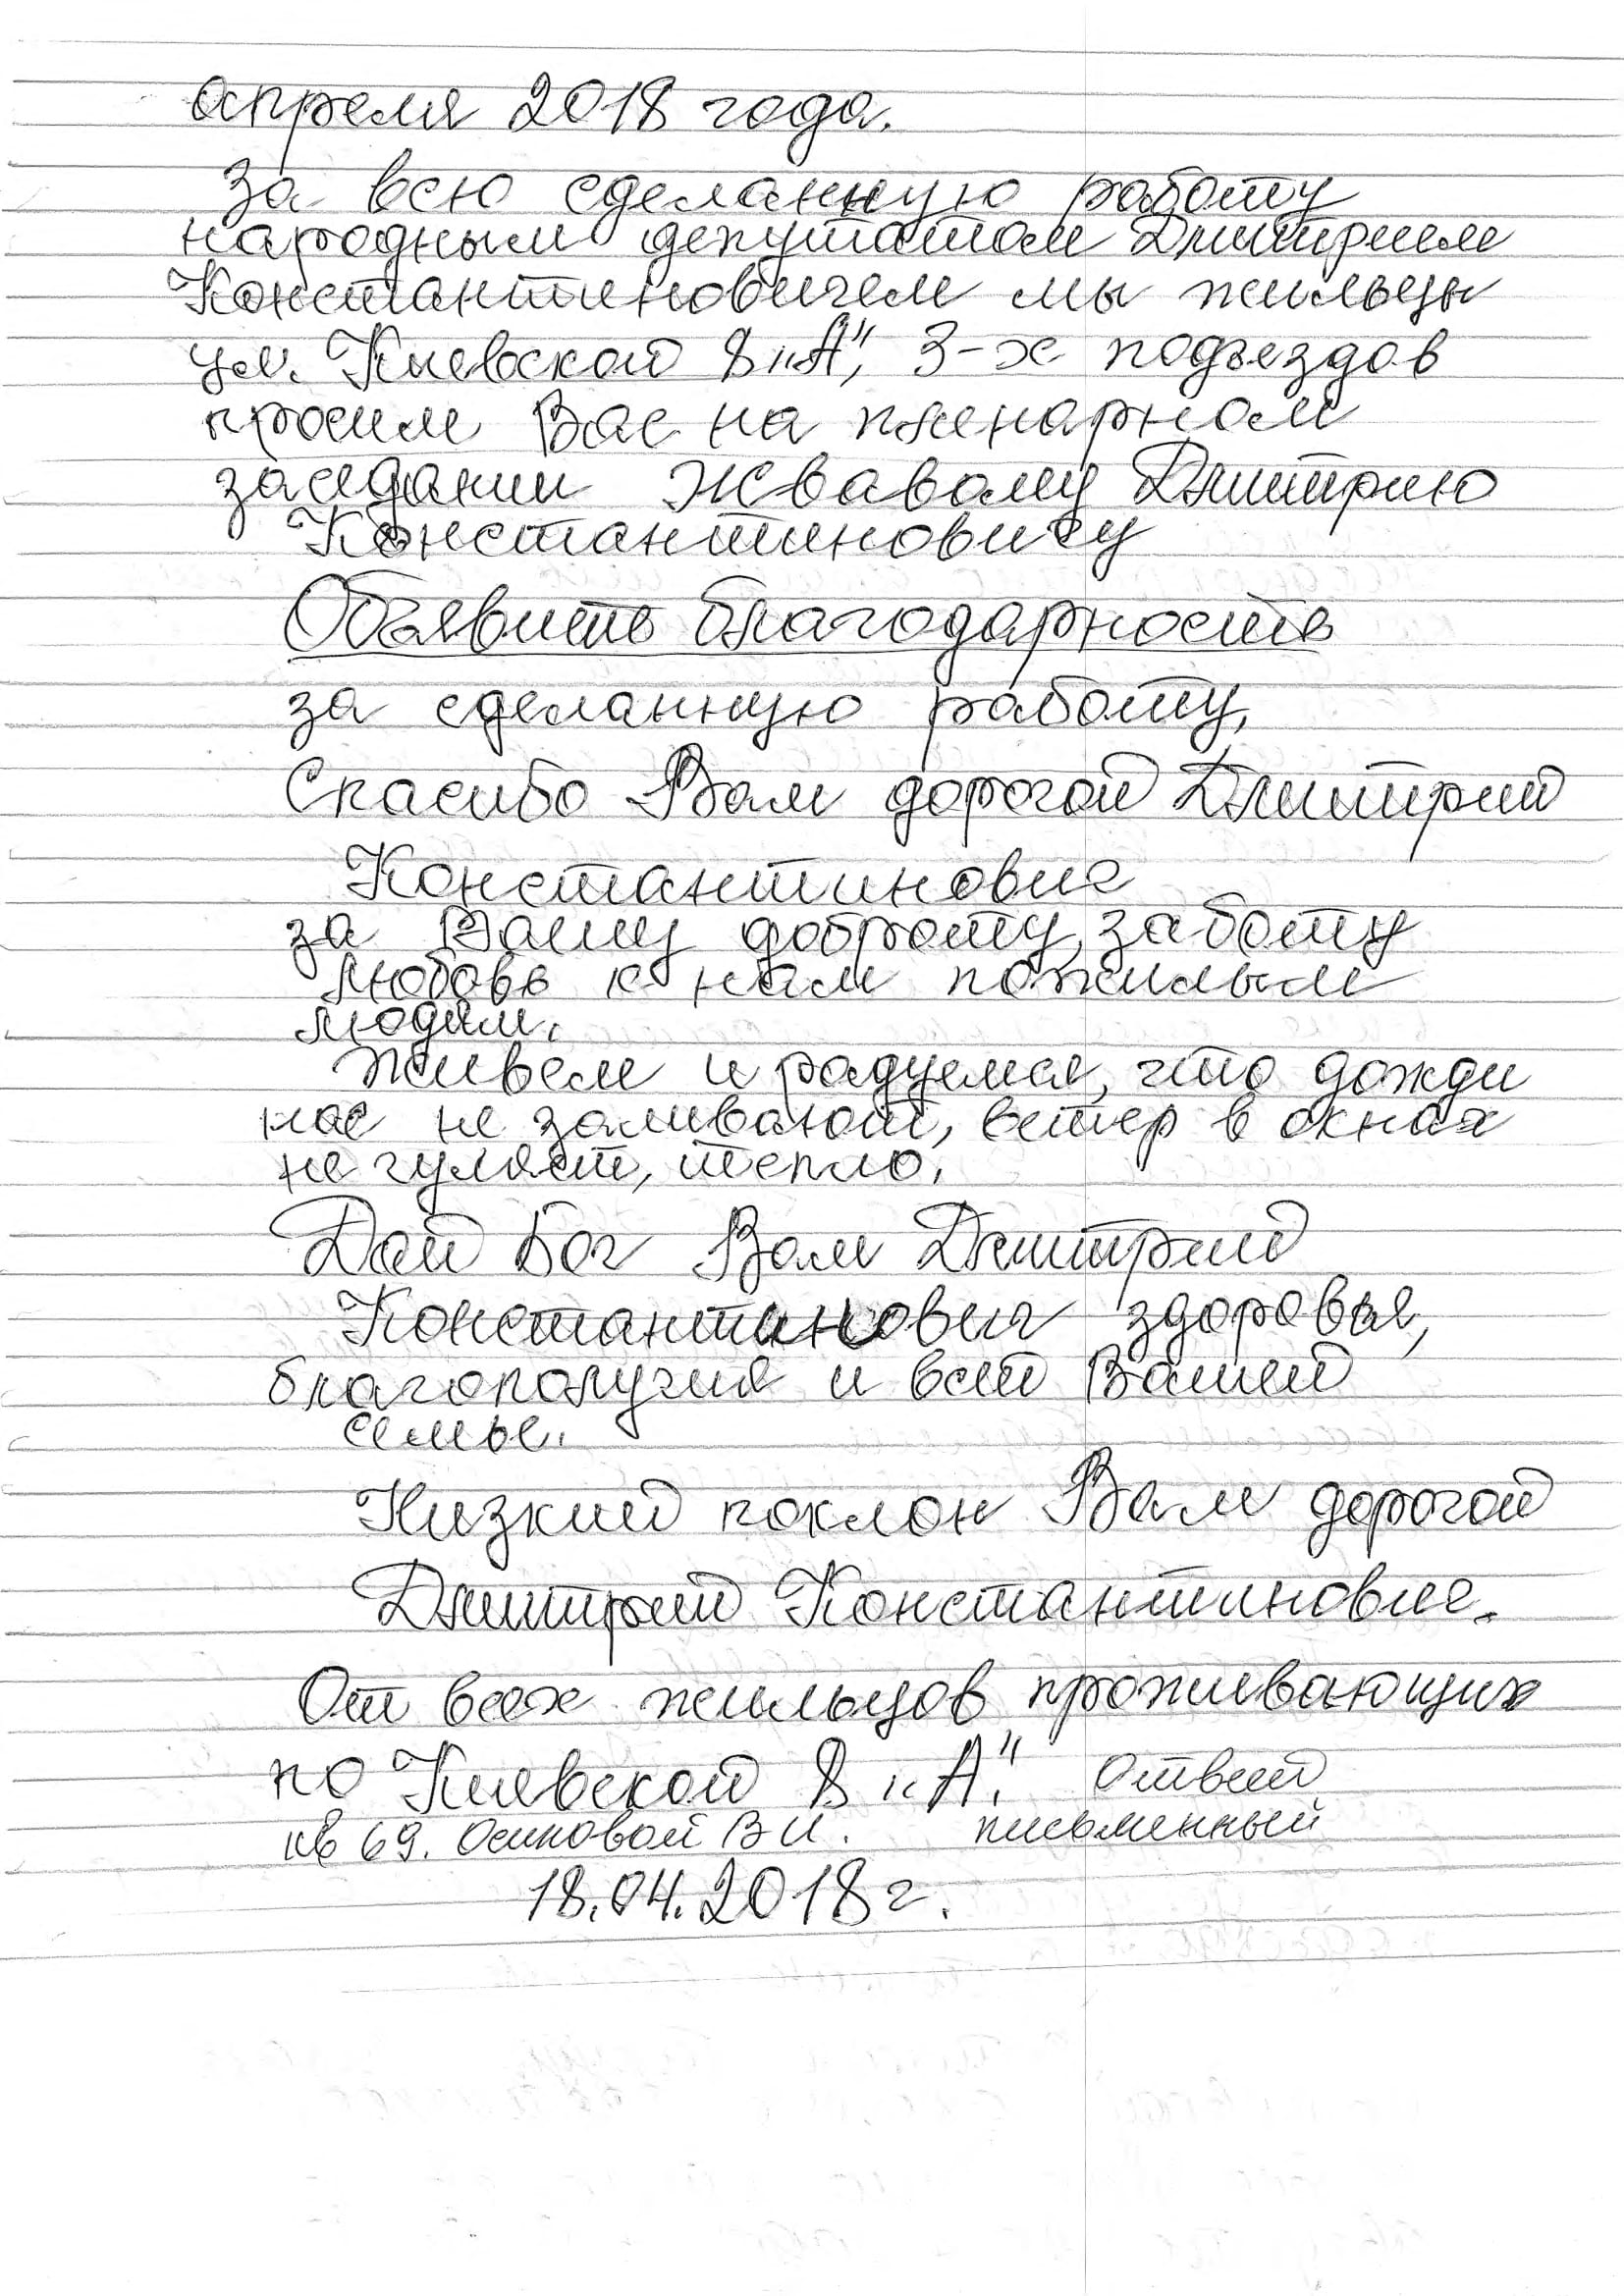 апреля 2018 года.
За всю сделанную работу
народным депутатом Дмитрием
Константиновичем мы жильцы
ул. Киевской 8 „А", 3-х подъездов
просим Вас на пленарном
заседании Жвавому Дмитрию
Константиновичу
Объявить благодарность
за сделанную работу,
Спасибо Вам дорогой Дмитрий
Константинович
за Вашу доброту, заботу
любовь к нам пожилым
людям.
Живем и радуемся, что дожди
нас не заливают, ветер в окнах
не гуляет, тепло.
Дай Бог Вам Дмитрий
Константинович здоровья,
благополучия и всей Вашей
семье.
Низкий поклон Вам дорогой
Дмитрий Константинович.
От всех жильцов проживающих
по Киевской 8 „А". Ответ
кв 69. Осиповой В И. письменный
18.04.2018 г.